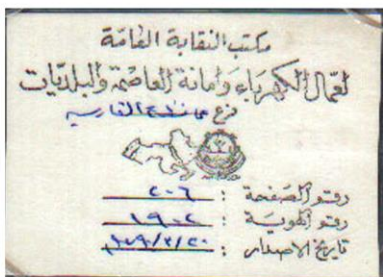 مكتب النقابة العامة
لعمال الكهرباء وأمانة العاصمة والبلديات
فرع القادسية
رقم الصفحة : ٢٠٦
رقم الهوية : ١٩٠٢
تاريخ الاصدار :